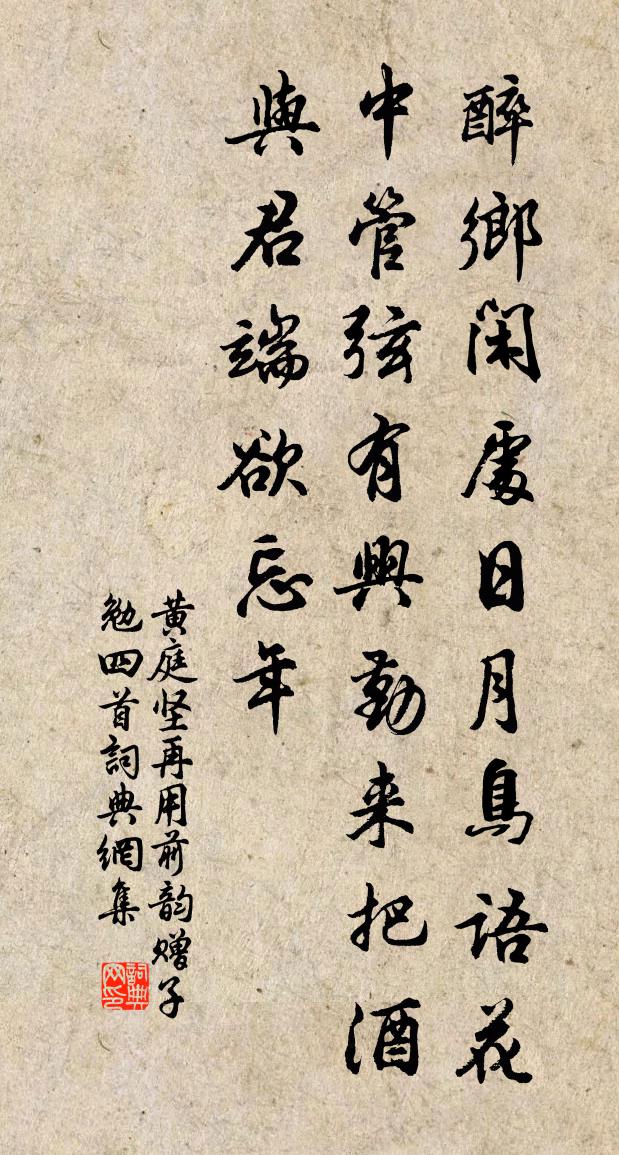 醉鄉閑處日月鳥語花
中管弦有興勤来把酒
與君端欲忘年
黄庭坚再用前韵赠子
勉四首詞典網集
詞典网印